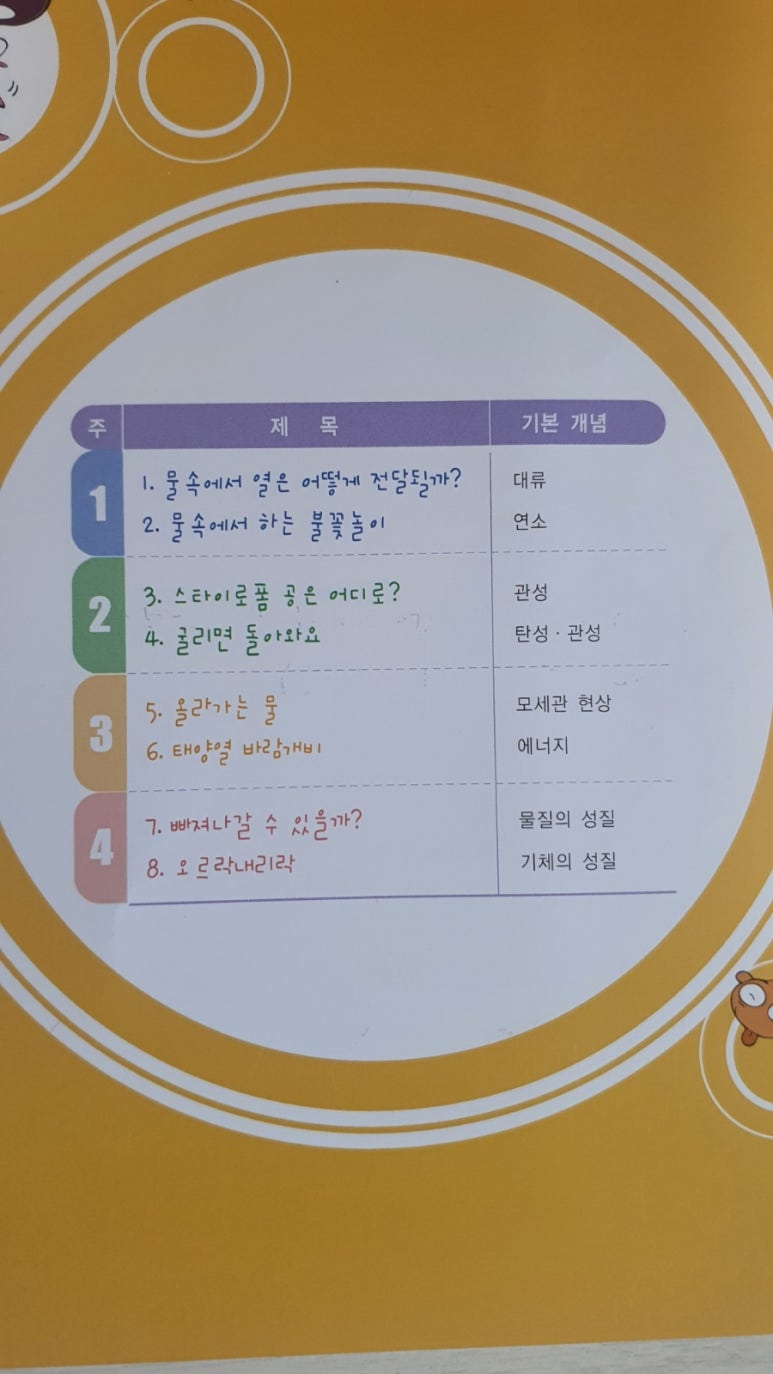 주 제 목 기본 개념
1 1. 물속에서 열은 어떻게 전달될까? 대류
2. 물속에서 하는 불꽃놀이 연소
2 3. 스타이로폼 공은 어디로? 관성
4. 굴리면 돌아와요 탄성 · 관성
3 5. 올라가는 물 모세관 현상
6. 태양열 바람개비 에너지
4 7. 빠져나갈 수 있을까? 물질의 성질
8. 오르락내리락 기체의 성질